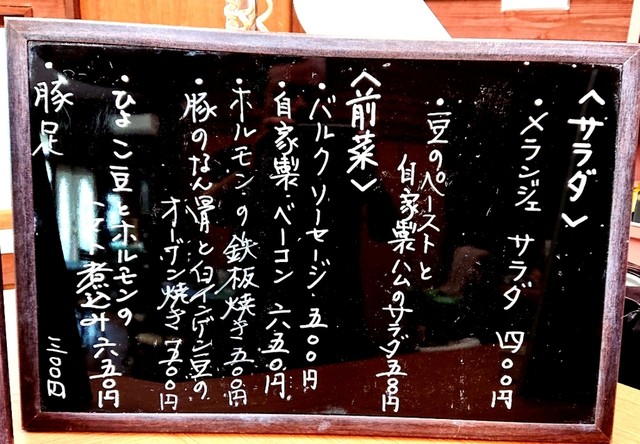 〈サラダ〉
・メランジェ サラダ 四〇〇円
・豆のペーストと
自家製ハムのサラダ 五〇円
〈前菜〉
・バルクソーセージ 五〇〇円
・自家製ベーコン 六五〇円
・ホルモンの鉄板焼き 五〇〇円
・豚のなん骨と白インゲン豆の
オーブン焼き 五〇〇円
・ひよこ豆とホルモンの
トマト煮込み 六五〇円
・豚足 三〇〇円